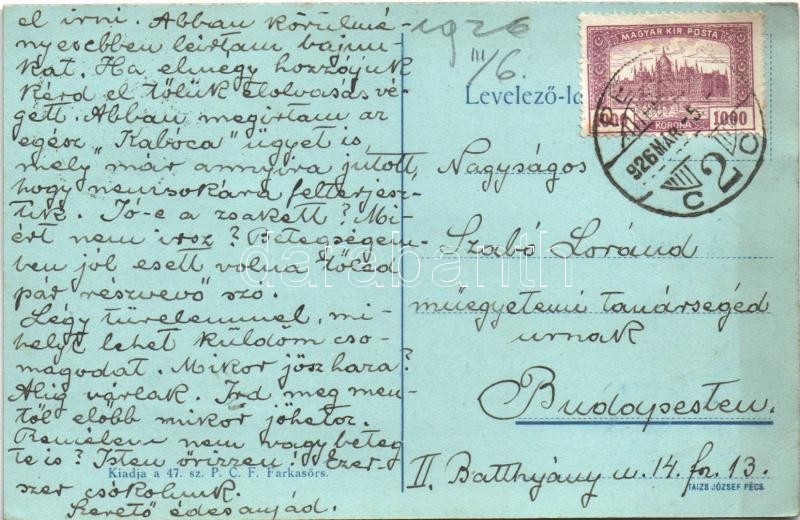 el irni. Abban körülmé-
nyesebben leirtam bajun-
kat. Ha elmegy hozzójuk
kérd el tőlük elolvasás vé-
gett. Abban megirtam az
egész „Kabóca" ügyet is,
mely már annyira jutott,
hogy nemsokára felterjesz-
tük. Jó-e a zsakett? Mi-
ért nem irsz? Betegségem-
ben jól esett volna tőled
pár részvevő szó.
Légy türelemmel, mi-
helyt lehet küldöm cso-
magodat. Mikor jösz haza?
Alig várlak. Ird meg men-
től előbb mikor jöhetsz.
Remélem nem vagy beteg
te is? Isten őrizzen! Ezer-
szer csókolunk.
Szerető édesanyád.
Kiadja a 47. sz. P. C. F. Farkasörs.
1926
III/6.
Levelező-l
MAGYAR KIR. POSTA
1000
KORONA
926 MAR -5
C 2
Nagyságos
Szabó Loránd
műegyetemi tanársegéd
urnak
Budapesten.
II. Batthyány u. 14. fsz. 13.
TAIZS JÓZSEF PÉCS.
darabanth